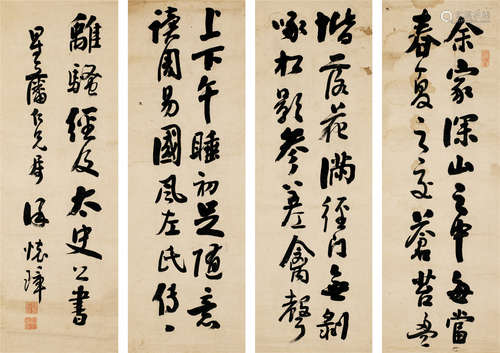 余家深山之中每當
春夏之交蒼苔盈
階落花滿徑門無剝
啄松影參差禽聲
上下午睡初足隨意
讀周易國風左氏傳
離騷經及太史公書
星藩仁兄屬 懷璋